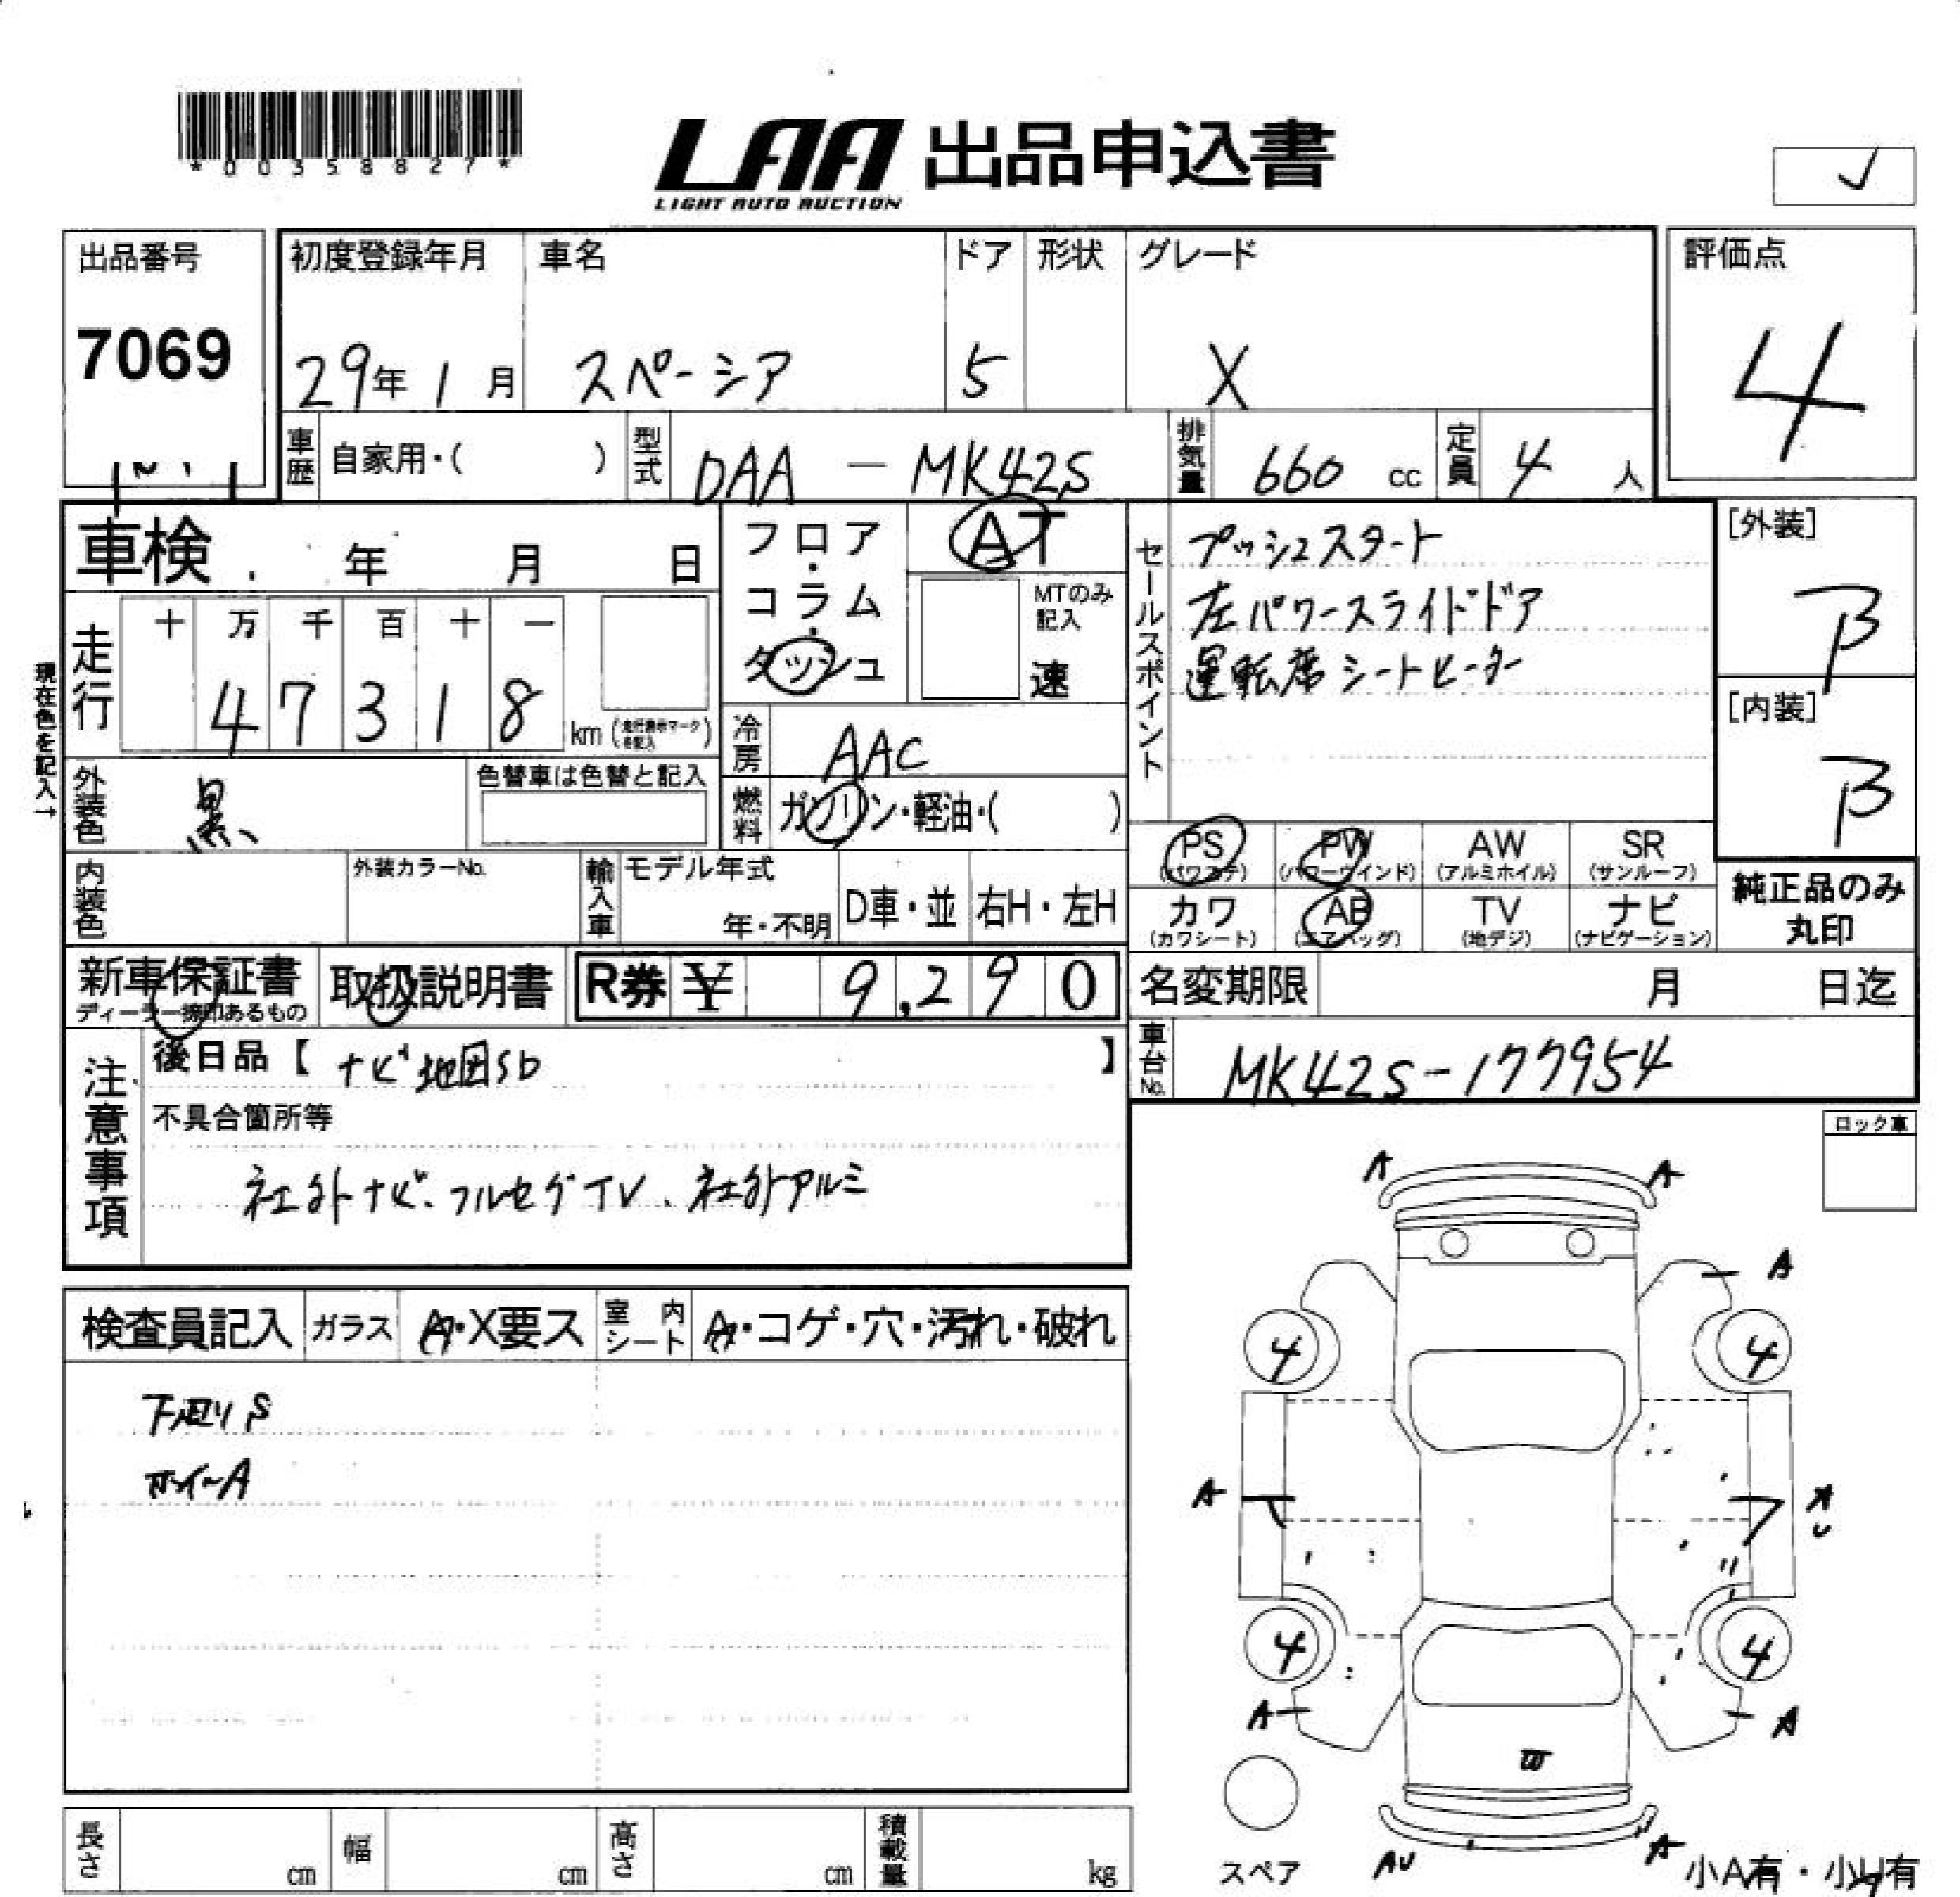 *00358827*
LAA 出品申込書
LIGHT AUTO AUCTION
出品番号
7069
初度登録年月
29年 1月
車名
スペーシア
ドア
5
形状
グレード
X
評価点
4
車歴 自家用・( )
型式 DAA - MK42S
排気量 660 cc
定員 4 人
車検 年 月 日
フロア・コラム・ダッシュ
AT
MTのみ記入
速
セールスポイント
プッシュスタート
左パワースライドドア
運転席シートヒーター
[外装]
B
[内装]
B
現在色を記入→
走行
十 万 千 百 十 一
4 7 3 1 8 km
冷房 AAC
外装色 黒
色替車は色替と記入
燃料 ガソリン・軽油・( )
PS (パワステ)
PW (パワーウインド)
AW (アルミホイル)
SR (サンルーフ)
カワ (カワシート)
AB (エアバッグ)
TV (地デジ)
ナビ (ナビゲーション)
純正品のみ
丸印
内装色
外装カラーNo.
輸入車
モデル年式
年・不明
D車・並
右H・左H
新車保証書
取扱説明書
R券 ¥ 9,290
名変期限 月 日迄
車台No. MK42S-177954
注意事項
後日品【 ナビ地図SD 】
不具合箇所等
社外ナビ、フルセグTV、社外アルミ
ロック車
検査員記入
ガラス A・X要ス
室内シート A・コゲ・穴・汚れ・破れ
下廻りS
ホイールA
A
A
A
4
4
A
A
U
4
4
A
A
W
スペア
AU
A
小A有・小U有
長さ cm
幅 cm
高さ cm
積載量 kg